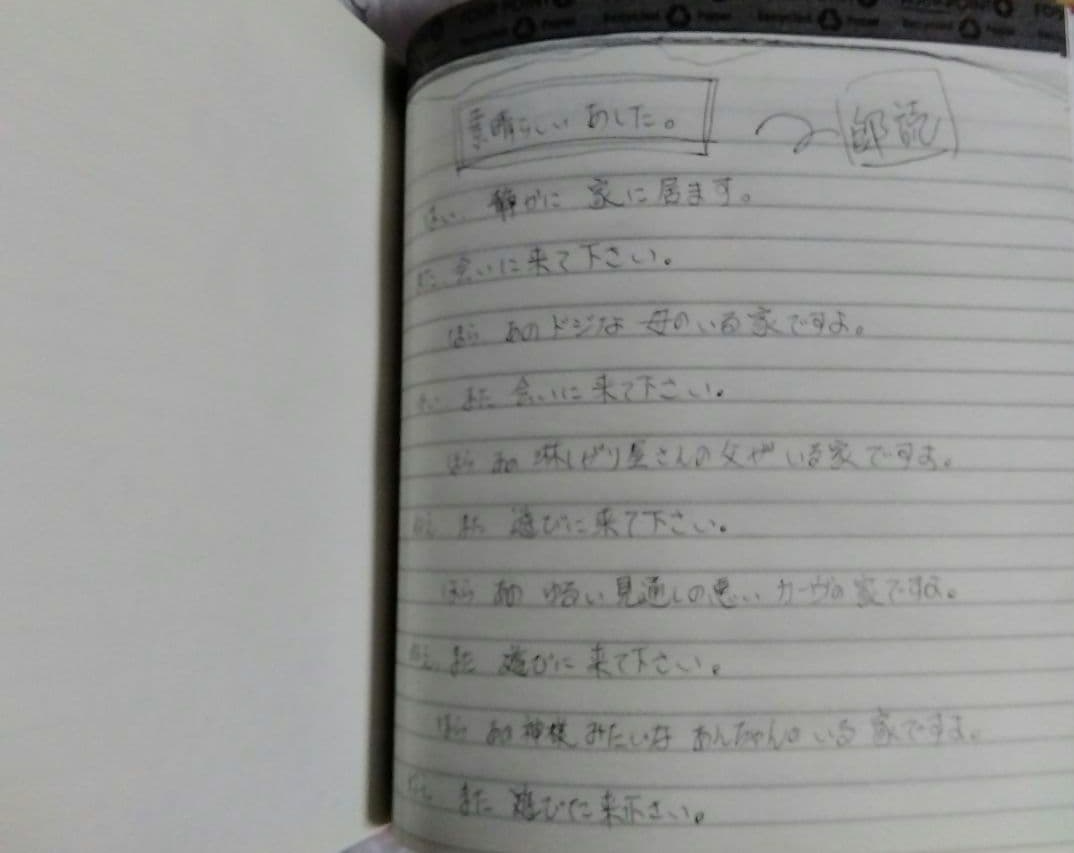 素晴らしい あした。
郎読
はい、静かに 家に居ます。
また 会いに来て下さい。
ほら あの ドジな 母の いる 家ですよ。
また 会いに 来て下さい。
ほら あの 淋しがり屋さんの 父が いる家 ですよ。
ねえ また 遊びに 来て下さい。
ほら あの ゆるい 見通しの悪い カーヴの 家ですよ。
ねえ また 遊びに 来て下さい。
ほら あの 神様 みたいな あんちゃんの いる 家ですよ。
また 遊びに 来下さい。